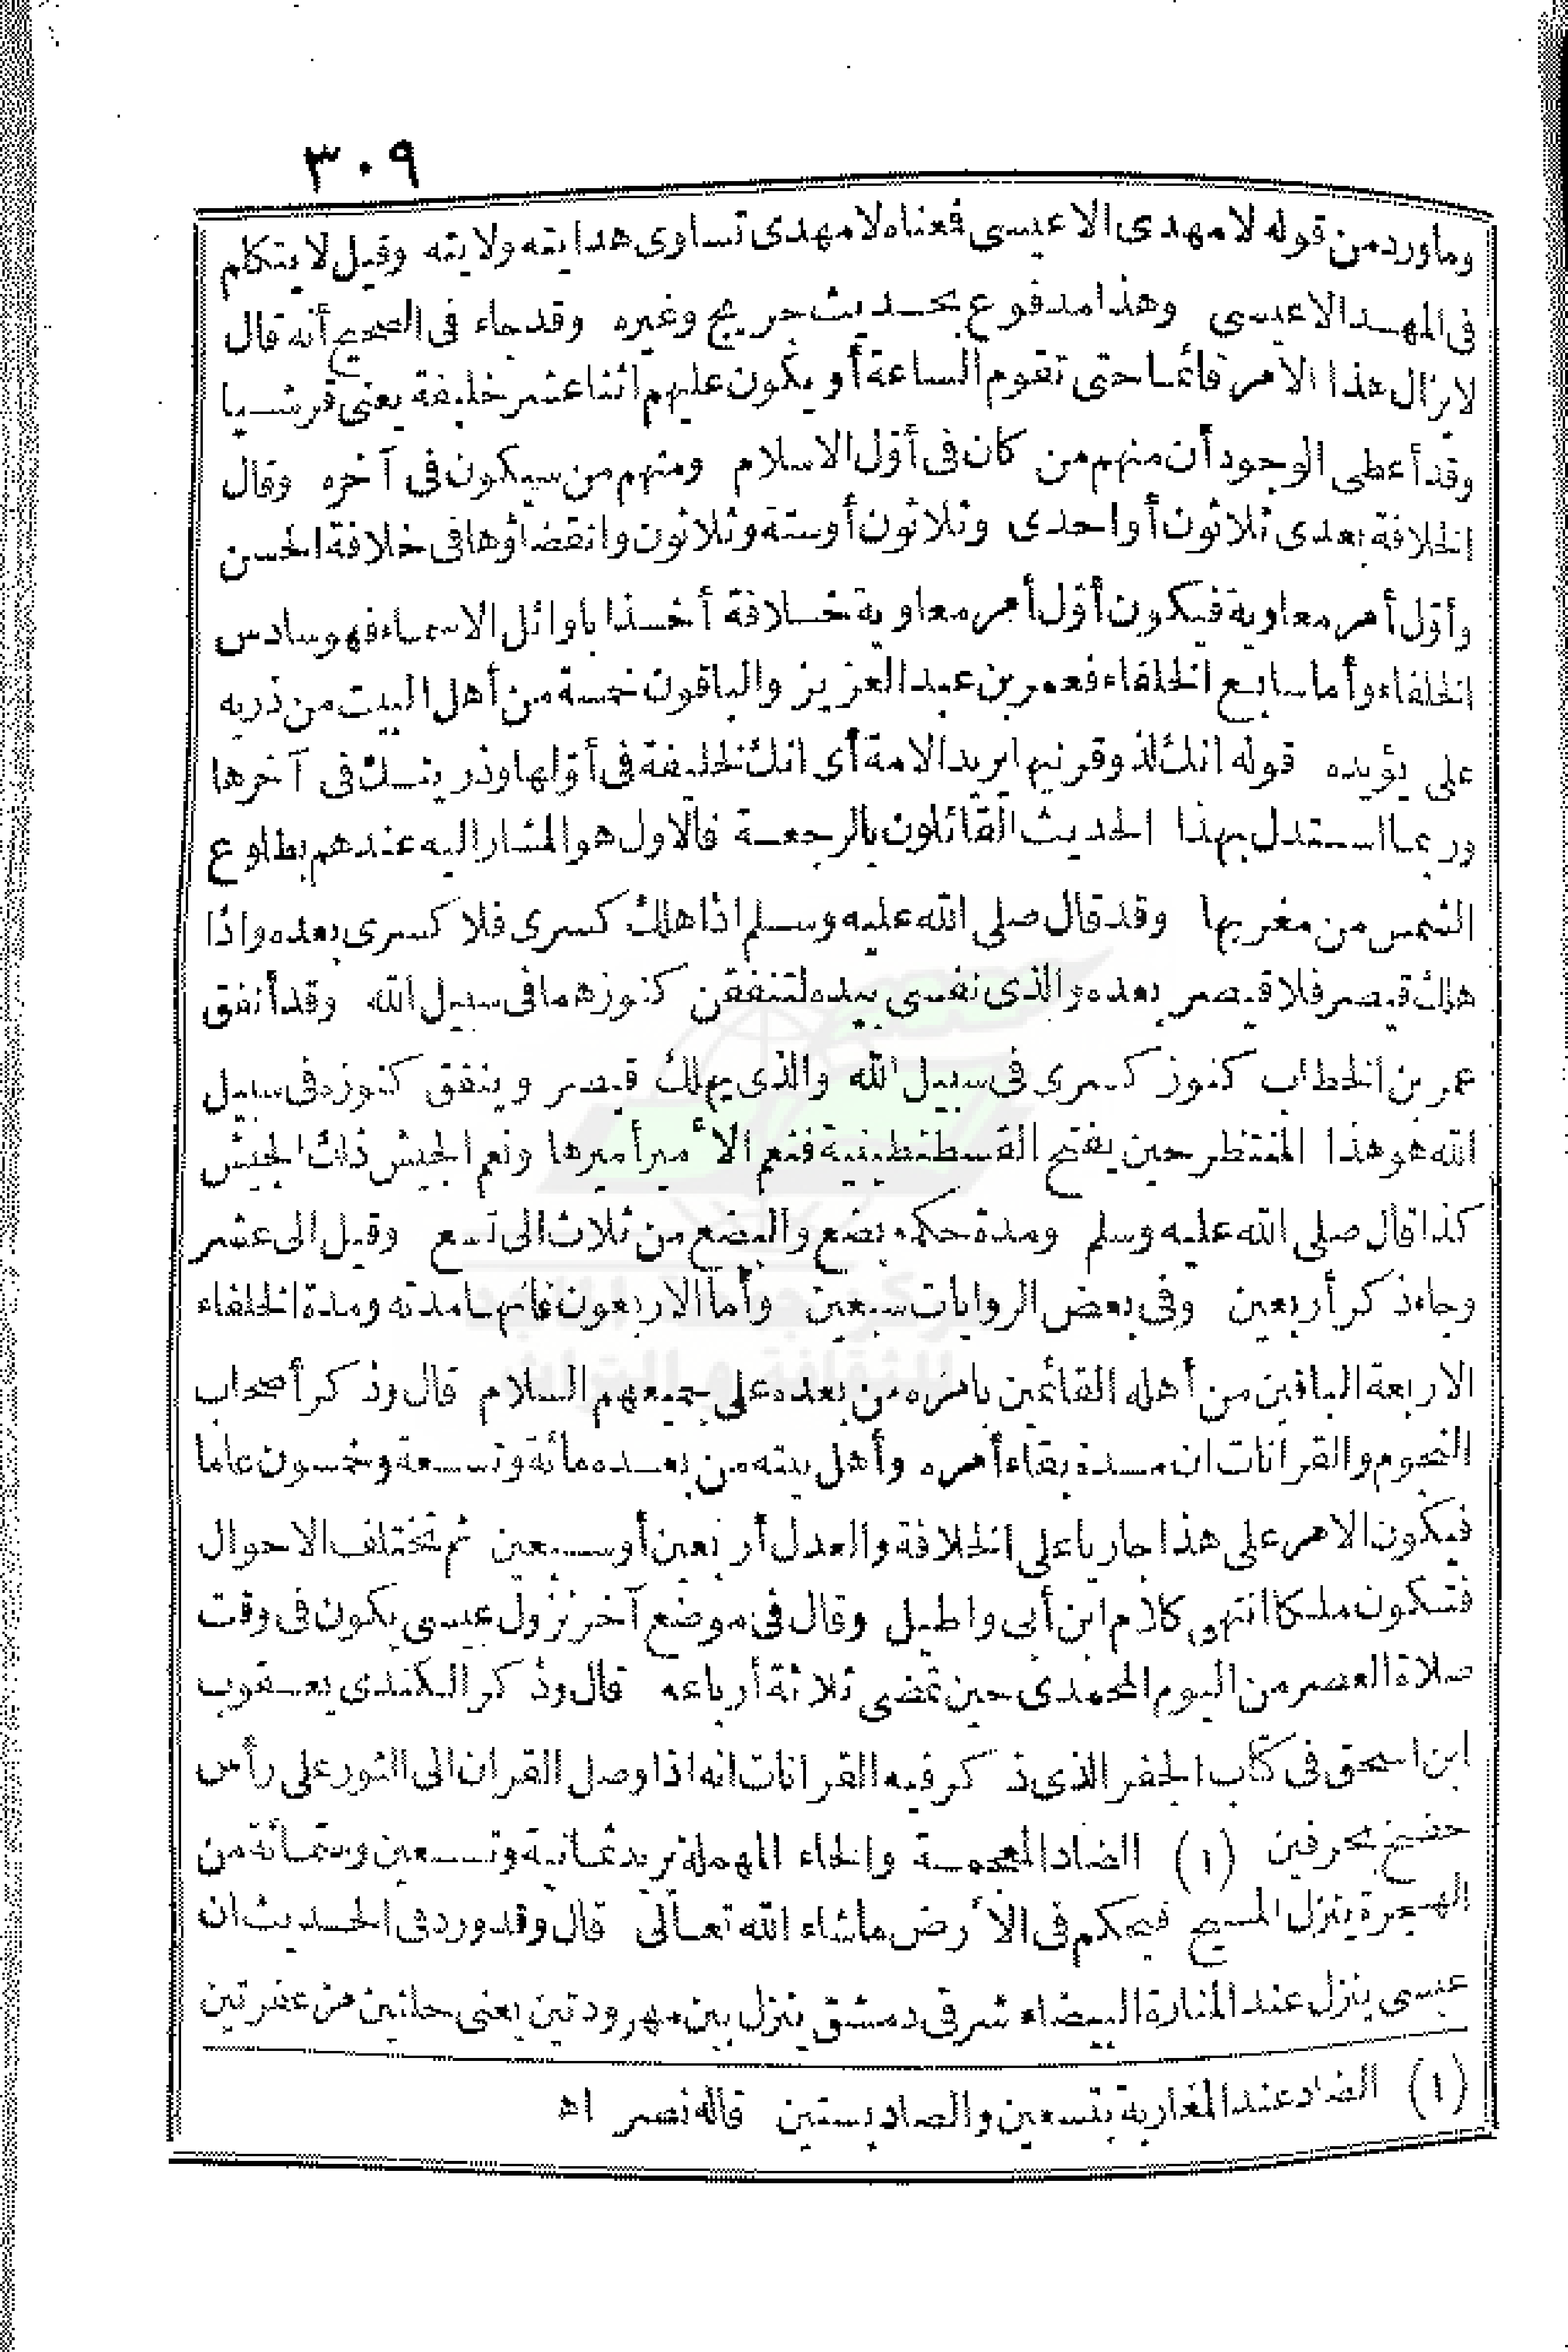 ٣٠٩
وما ورد من قوله لا مهدى الا عيسى فعناه لا مهدى تساوى هدايته ولايته وقيل لا يتكلم
فى المهد الا عيسى وهذا مدفوع بحديث جريج وغيره وقد جاء فى الصحيح أنه قال
لا يزال هذا الامر قائما حتى تقوم الساعة أو يكون عليهم اثنا عشر خليفة يعنى قرشيا
وقد أعطى الوجود أن منهم من كان فى أوّل الاسلام ومنهم من سيكون فى آخره وقال
الخلافة بعدى ثلاثون أو احدى وثلاثون أوستة وثلاثون وانقضاؤها فى خلافة الحسن
وأوّل أمر معاوية فيكون أوّل أمر معاوية خلافة أخذا باوائل الاسماء فهو سادس
الخلفاء وأما سابع الخلفاء فعمر بن عبد العزيز والباقون خمسة من أهل البيت من ذريه
على يؤيده قوله انك لذو قرنيها يريد الامة أى انك لخليفة فى أوّلها وذريتك فى آخرها
وربما استدل بهذا الحديث القائلون بالرجعة فالاول هو المشار اليه عندهم بطلوع
الشمس من مغربها وقد قال صلى الله عليه وسلم اذا هلك كسرى فلا كسرى بعده واذا
هلك قيصر فلا قيصر بعده والذى نفسى بيده لتنفقن كنوزهما فى سبيل الله وقد أنفق
عمر بن الخطاب كنوز كسرى فى سبيل الله والذى يهلك قيصر وينفق كنوزه فى سبيل
الله هو هذا المنتظر حين يفتح القسطنطينية فنعم الأمير أميرها ونعم الجيش ذلك الجيش
كذا قال صلى الله عليه وسلم ومدة حكمه بضع والبضع من ثلاث الى تسع وقيل الى عشر
وجاء ذكر أربعين وفى بعض الروايات سبعين وأما الاربعون فانها مدته ومدة الخلفاء
الاربعة الباقين من أهله القائمين بامره من بعده على جميعهم السلام قال وذكر أصحاب
النجوم والقرانات ان مدة بقاء أمره وأهل بيته من بعده مائة وتسعة وخمسون عاما
فيكون الامر على هذا جاريا على الخلافة والعدل أربعين أو سبعين ثم تختلف الاحوال
فتكون ملكا انتهى كلام ابن أبى واطيل وقال فى موضع آخر نزول عيسى يكون فى وقت
صلاة العصر من اليوم المحمدى حين تمضى ثلاثة أرباعه قال وذكر الكندى يعقوب
ابن اسحق فى كتاب الجفر الذى ذكر فيه القرانات انه اذا وصل القران الى الثور على رأس
حضخ بحرفين (١) الضاد المعجمة والحاء المهملة تريد ثمانية وتسعين وستمائة من
الهجرة ينزل المسيح فيحكم فى الأرض ماشاء الله تعالى قال وقد ورد فى الحديث ان
عيسى ينزل عند المنارة البيضاء شرقى دمشق ينزل بين مهرودتين يعنى حلتين من عفرتين
(١) الضاد عند المغاربة بتسعين والصاد بستين قاله نصر اه